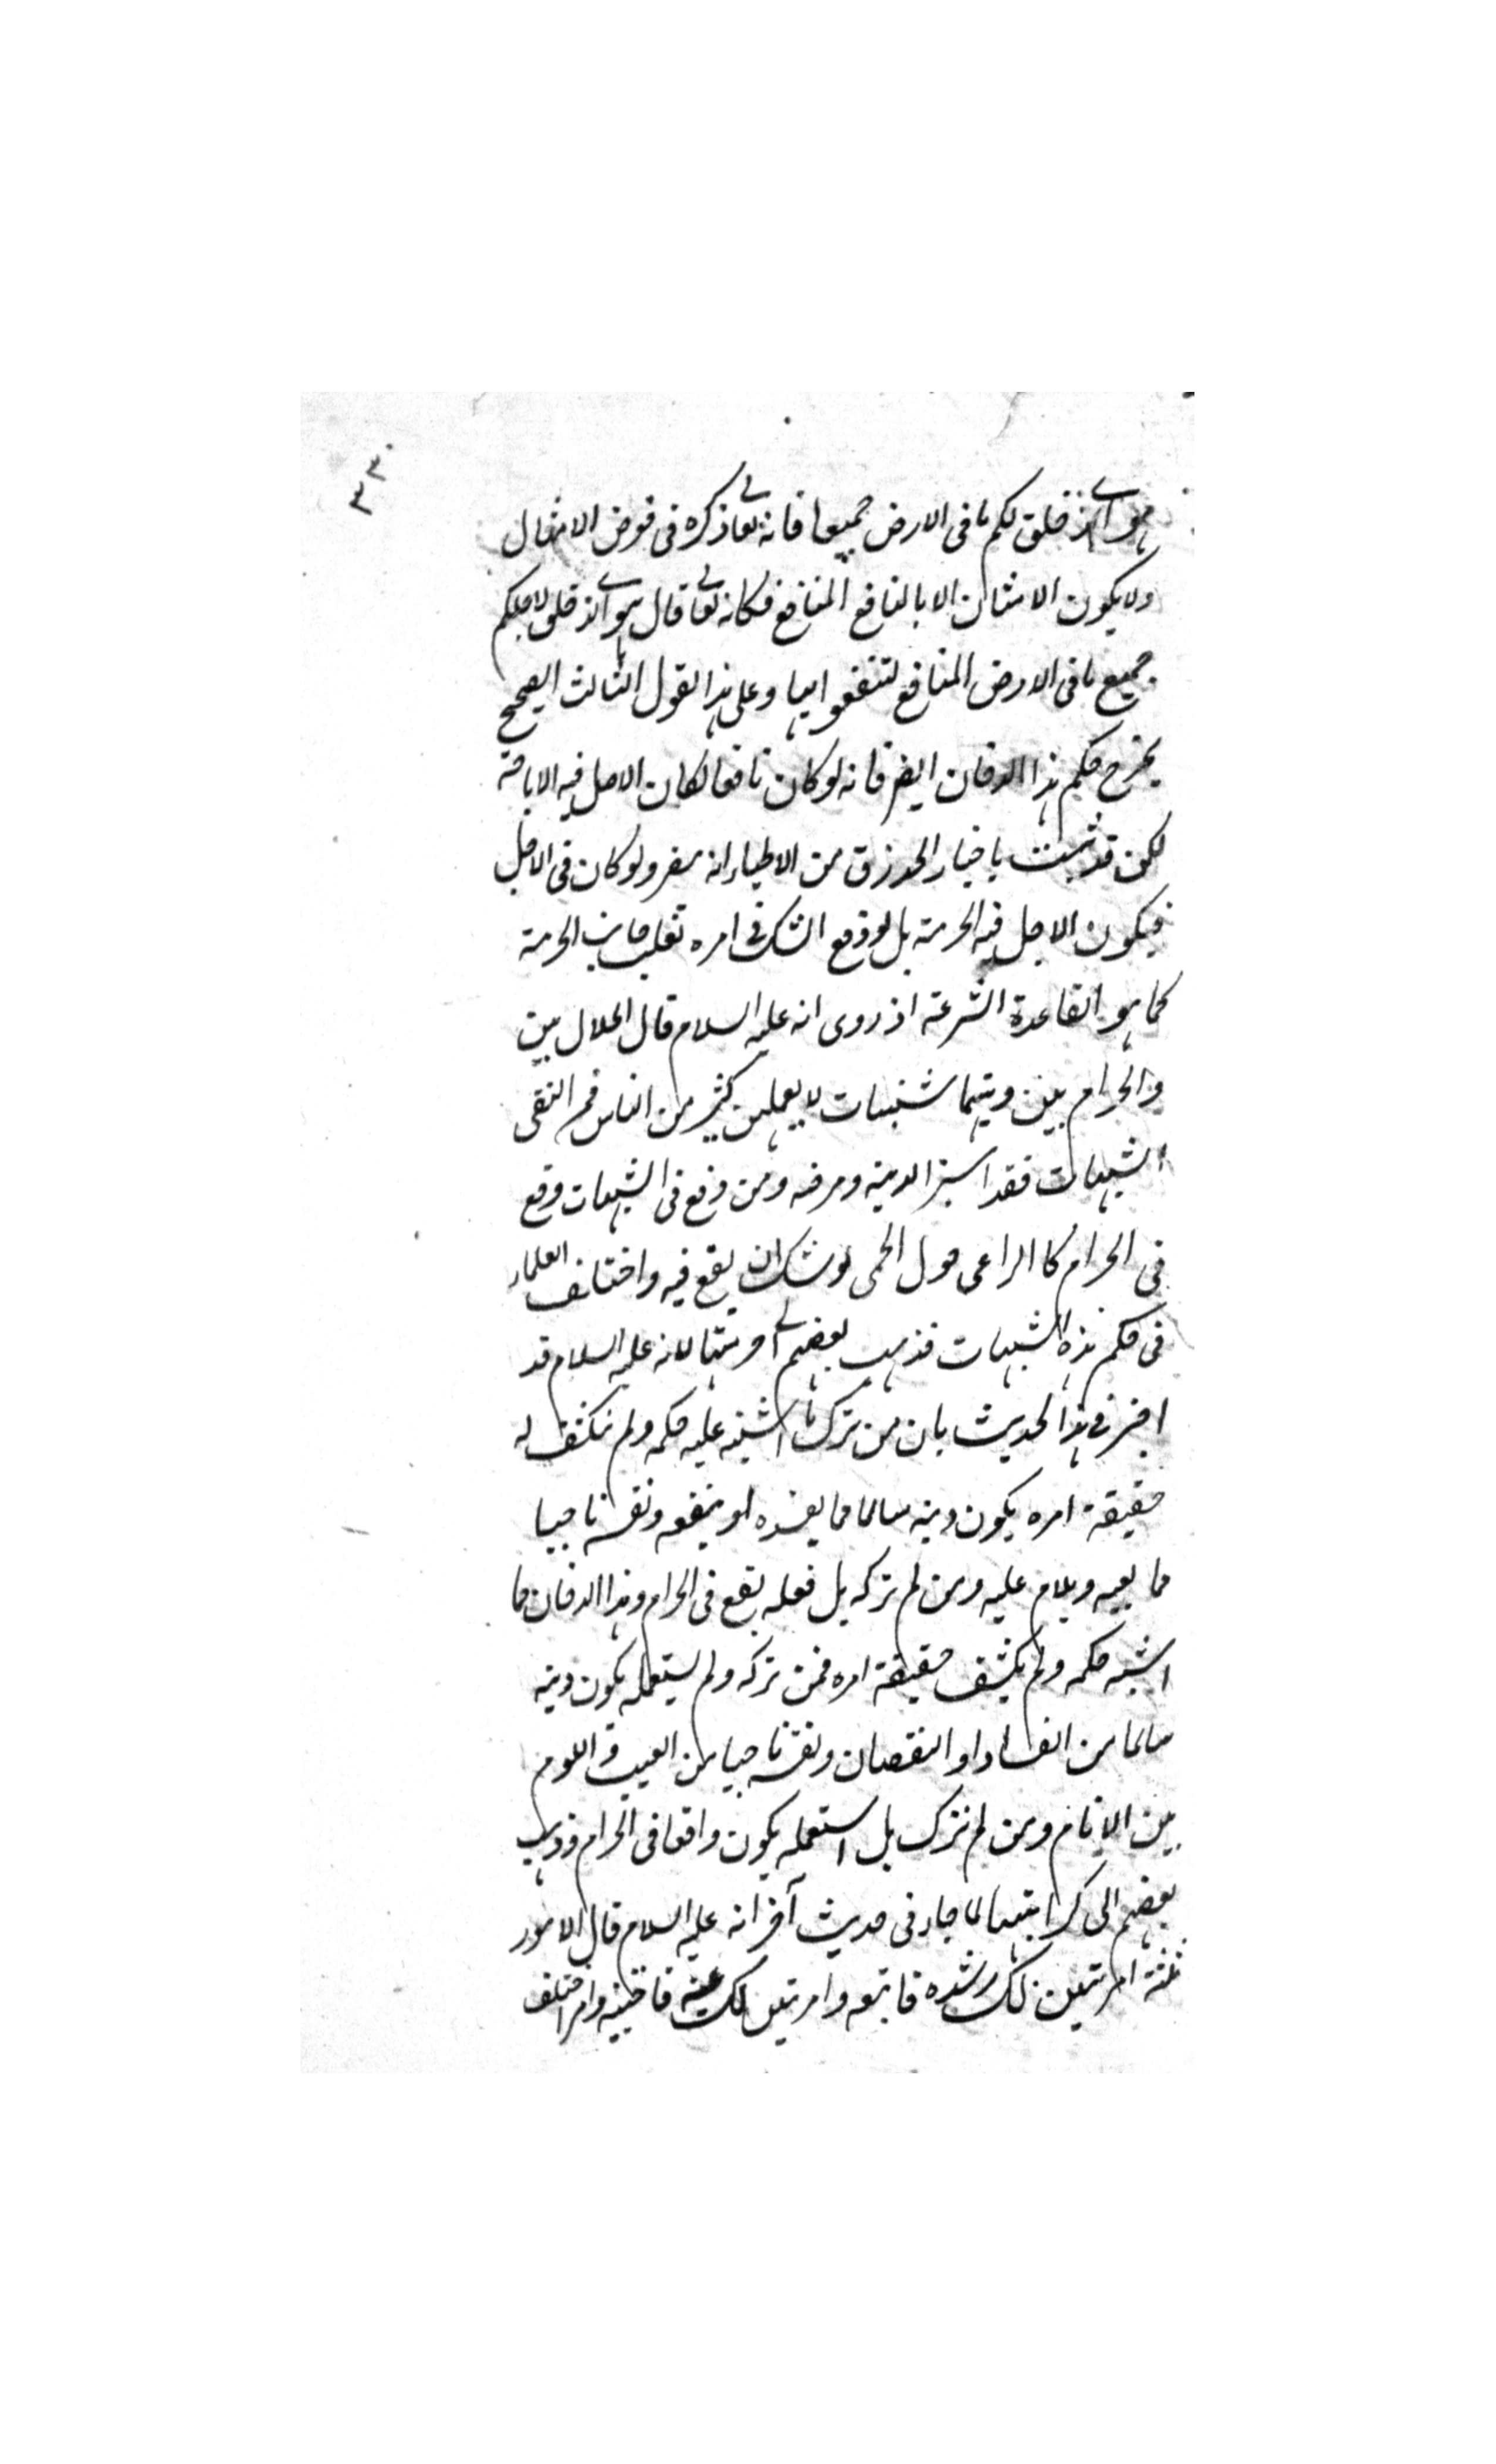 ٣٣
هو الذي خلق لكم ما في الارض جميعا فانه تعالى ذكره في فرض الامثال
ولا يكون الامثان الا بالنافع المنافع فكانه تعالى قال هو الذي خلق لاجلكم
جميع ما في الارض المنافع لتنفعوا بها وعلى هذا القول الثالث الصحيح
يخرج حكم هذا الدخان ايضر فانه لو كان نافعا لكان الاصل فيه الاباحة
لكن قد ثبت باخبار الحذزق من الاطباء انه مضر ولو كان في الاجل
فيكون الاصل فيه الحرمة بل لو وقع الشك في امره تغلب جانب الحرمة
كما هو القاعدة الشرعة اذ روى انه عليه السلام قال الحلال بين
والحرام بين وبينهما شتبهات لا يعلمهن كثير من الناس فمن اتقى
الشبهات فقد استبرا لدينه وعرضه ومن وقع في الشبهات وقع
في الحرام كا الراعي حول الحمى يوشك ان يقع فيه واختلف العلماء
في حكم هذه الشبهات فذهب بعضهم الى حرمتها لانه عليه السلام قد
اخبر في هذا الحديث بان من ترك ما اشتبه عليه حكمه ولم ينكشف له
حقيقة امره يكون دينه سالما مما يفسده او ينقصه ونفسه ناجيا
مما يعيبه ويلام عليه ومن لم تركه بل فعله يقع في الحرام وهذا الدخان مما
اشتبه حكمه ولم يكشف حقيقة امره فمن تركه ولم يستعمله يكون دينه
سالما من الفساد او النقصان ونفسه ناجيا من العيب واللوم
بين الانام ومن لم تترك بل استعمله يكون واقعا في الحرام وذهب
بعضهم الى كراهتها لما جاء في حديث آخر انه عليه السلام قال الامور
ثلثة امر تبين لك رشده فاتبعه وامر تبين لك غيه فاجتنبه وامر اختلف